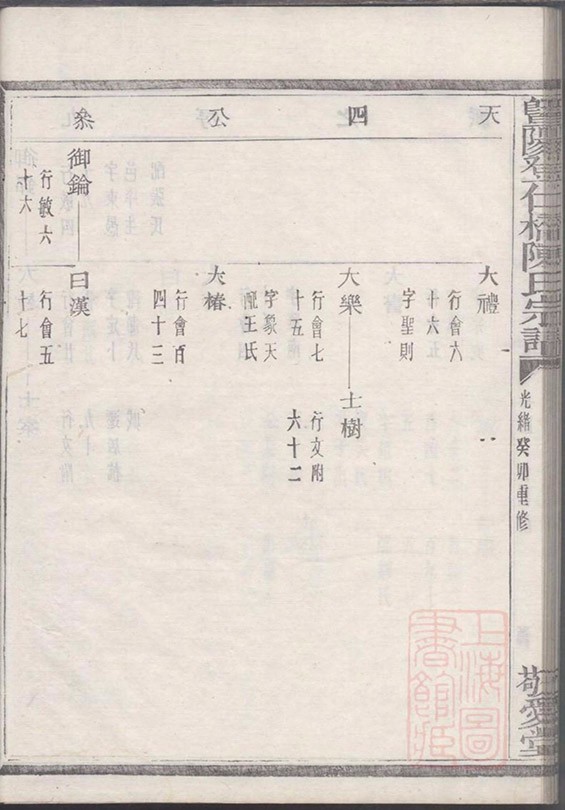 暨陽登仁橋陳氏宗譜
光緒癸卯重修
敬愛堂
天四公叅
大禮
行會六
十六五
字聖則
大樂
行會七
十五
字象天
配王氏
士樹
行文附
六十二
大椿
行會百
四十三
御錀
行敏六
十六
曰漢
行會五
十七
上海圖
書館藏